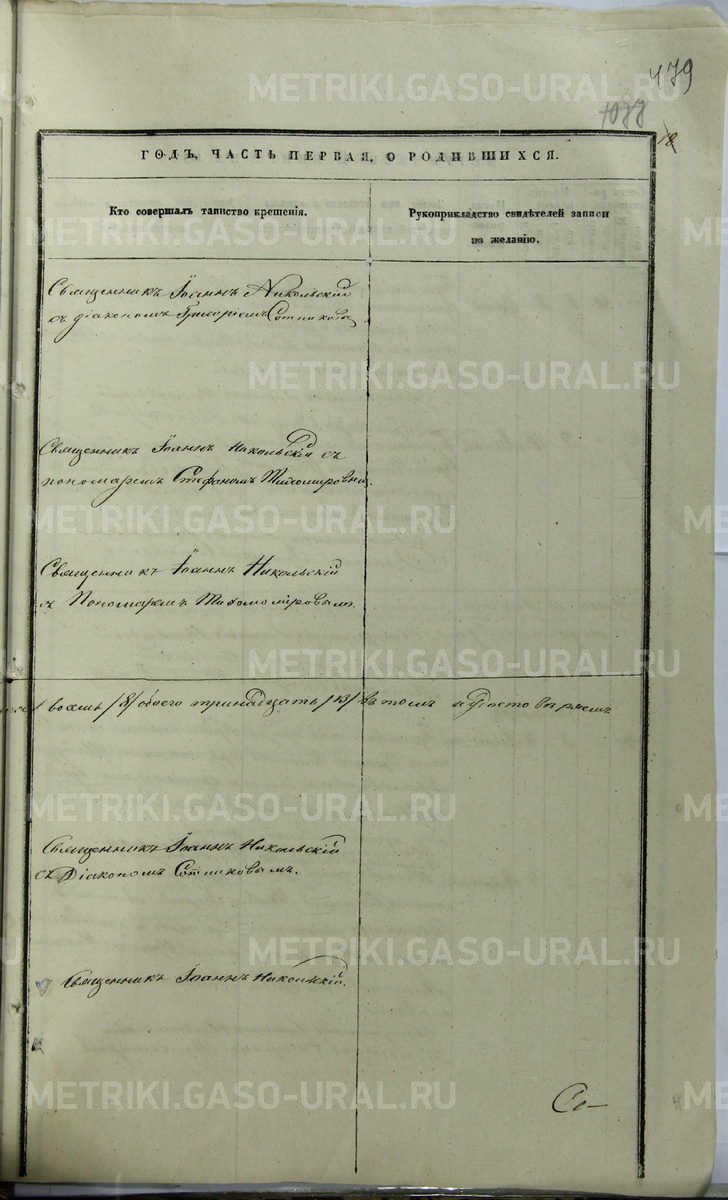 METRIKI.GASO-URAL.RU
479
1077
18
ГОДЪ, ЧАСТЬ ПЕРВАЯ, О РОДИВШИХСЯ.
Кто совершалъ таинство крещенія.
Рукоприкладство свидѣтелей записи
по желанію.
Священникъ Іоаннъ Никольскій
съ діакономъ Григоріемъ Сотниковы
Священникъ Іоаннъ Никольскій съ
пономаремъ Стефаномъ Тихомировы
Священникъ Іоаннъ Никольскій
съ Пономаремъ Тихомировымъ
восмь /8/ обоего тринадцать /13/ въ томъ и
Священникъ Іоаннъ Никольскій
съ Діакономъ Сотниковымъ.
Священникъ Іоаннъ Никольскій.
Со-